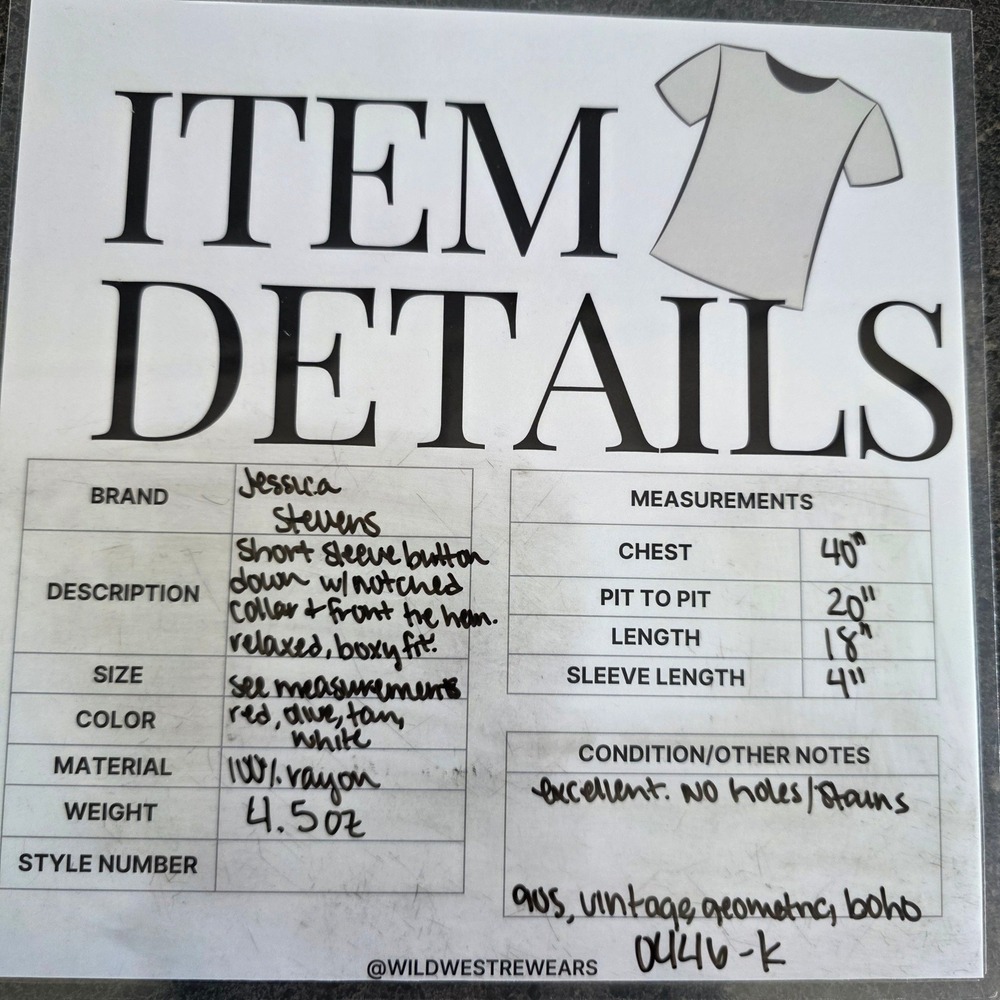 ITEM
DETAILS
BRAND
Jessica
Stevens
DESCRIPTION
short sleeve button
down w/notched
collar + front tie hem.
relaxed, boxy fit.
SIZE
see measurements
COLOR
red, olive, tan,
white
MATERIAL
100% rayon
WEIGHT
4.5oz
STYLE NUMBER
MEASUREMENTS
CHEST 40"
PIT TO PIT 20"
LENGTH 18"
SLEEVE LENGTH 4"
CONDITION/OTHER NOTES
excellent. No holes/stains
90s, vintage, geometric, boho
0446-K
@WILDWESTREWEARS